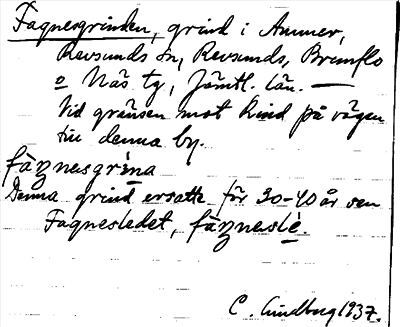 Fagnesgrinden, grind i Ammer,
Revsunds sn, Revsunds, Brunflo
o Näs tg, Jämtl. län. —
Vid gränsen mot Kind på vägen
till denna by.
fàŋnesgrìna
Denna grind ersatte för 30-40 år sen
Fagnesledet, fàŋneslè.
C. Lindberg 1937.